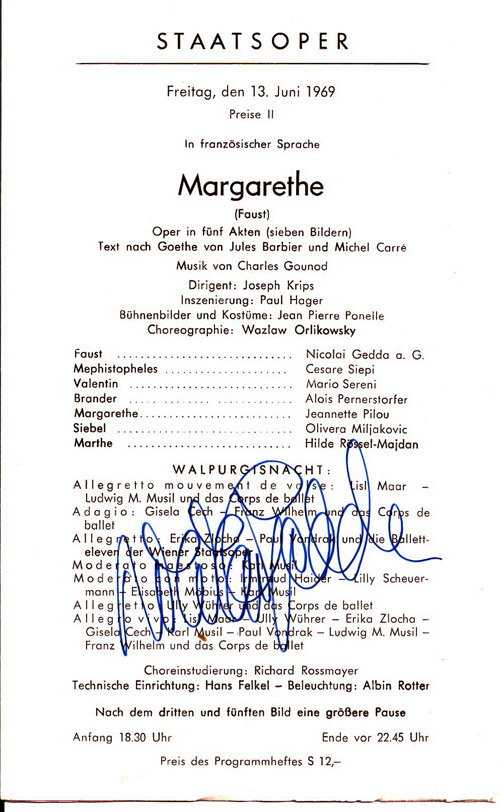 STAATSOPER
Freitag, den 13. Juni 1969
Preise II
In französischer Sprache
Margarethe
(Faust)
Oper in fünf Akten (sieben Bildern)
Text nach Goethe von Jules Barbier und Michel Carré
Musik von Charles Gounod
Dirigent: Joseph Krips
Inszenierung: Paul Hager
Bühnenbilder und Kostüme: Jean Pierre Ponelle
Choreographie: Wazlaw Orlikowsky
Faust ............................ Nicolai Gedda a. G.
Mephistopheles ................... Cesare Siepi
Valentin .......................... Mario Sereni
Brander .......................... Alois Pernerstorfer
Margarethe........................ Jeannette Pilou
Siebel ............................ Olivera Miljakovic
Marthe .......................... Hilde Rössel-Majdan
WALPURGISNACHT:
Allegretto mouvement de valse: Lisl Maar –
Ludwig M. Musil und das Corps de ballet
Adagio: Gisela Cech – Franz Wilhelm und das Corps de
ballet
Allegretto: Erika Zlocha – Paul Vondrak und die Ballett-
eleven der Wiener Staatsoper
Moderato maestoso: Karl Musil
Moderato con moto: Irmtraud Haider – Lilly Scheuer-
mann – Elisabeth Möbius – Karl Musil
Allegretto: Ully Wührer und das Corps de ballet
Allegro vivo: Lisl Maar – Ully Wührer – Erika Zlocha –
Gisela Cech – Karl Musil – Paul Vondrak – Ludwig M. Musil –
Franz Wilhelm und das Corps de ballet
Choreinstudierung: Richard Rossmayer
Technische Einrichtung: Hans Felkel – Beleuchtung: Albin Rotter
Nach dem dritten und fünften Bild eine größere Pause
Anfang 18.30 Uhr Ende vor 22.45 Uhr
Preis des Programmheftes S 12,–